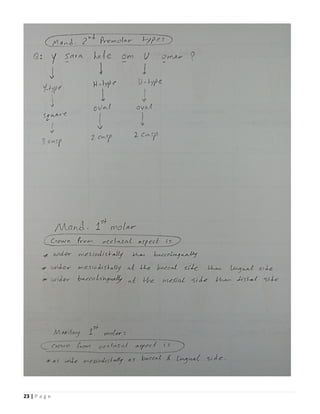 Mand. 2nd Premolar types
Q: Y Sara hate om U omar ?
Y-type H-type U-type
square oval oval
3 cusp 2 cusp 2 cusp
Mand. 1st molar
Crown from occlusal aspect is
* wider mesiodistally than buccolingually
* wider mesiodistally at the buccal side than lingual side
* wider buccolingually at the mesial side than distal side
Maxillary 1st molar:
Crown from occlusal aspect is
* as wide mesiodistally as buccal & lingual side.
23 | Page